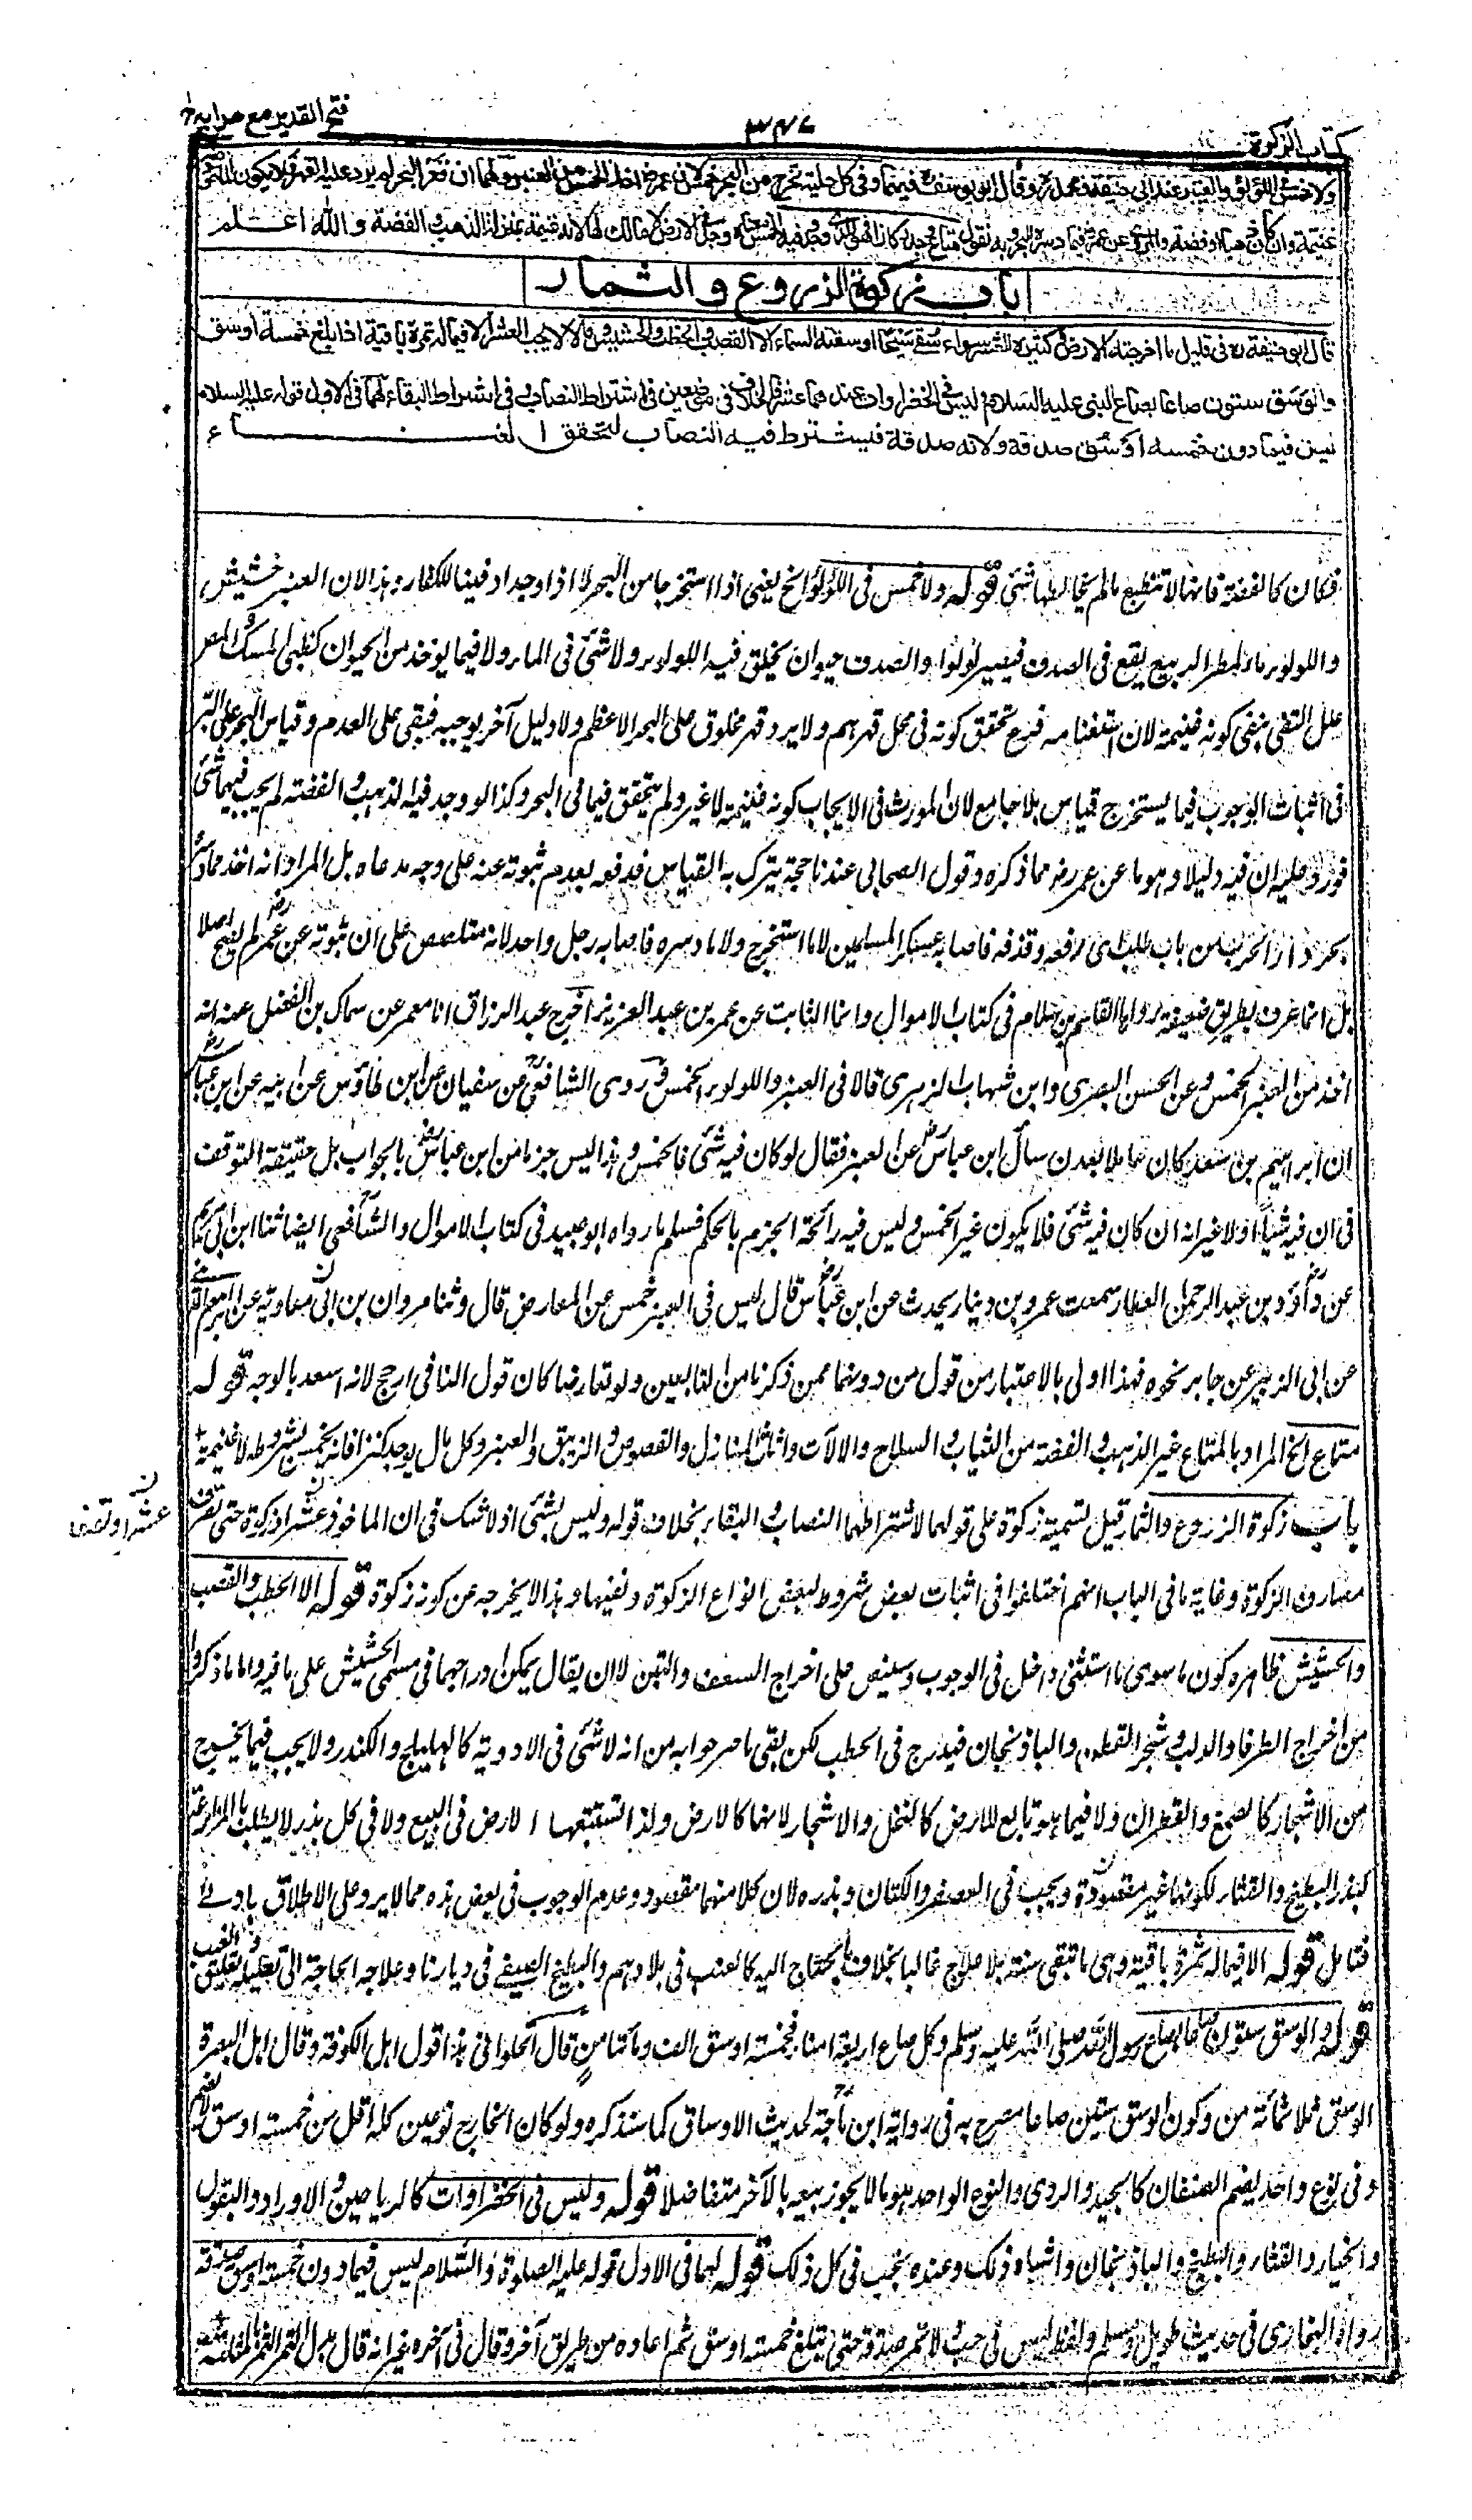 كتاب الزكوة
٣٤٧
فتح القدير مع هدايه
ولا خمس فى اللؤلؤ والعنبر عند ابى حنيفة ومحمد وقال ابو يوسف فيهما وفى كل حلية تخرج من البحر خمس لان عمر رض اخذ الخمس من العنبر ولهما ان قعر البحر لم يرد عليه القهر فلا يكون الماخوذ منه
غنيمة وان كان ذهبا او فضة والمروى عن عمر فيما دسره البحر وبه نقول متاع وجد ركازا فهو للذى وجده وفيه الخمس معناه وجد فى الارض لا مالك لها لانه غنيمة بمنزلة الذهب والفضة والله اعلم
باب زكوة الزروع والثمار
قال ابو حنيفة ره فى قليل ما اخرجته الارض وكثيره العشر سواء سقى سيحا او سقته السماء الا القصب والحطب والحشيش وقالا لا يجب العشر الا فيما له ثمرة باقية اذا بلغ خمسة اوسق
والوسق ستون صاعا بصاع النبى عليه السلام وليس فى الخضراوات عندهما عشر فالخلاف فى موضعين فى اشتراط النصاب وفى اشتراط البقاء لهما فى الاول قوله عليه السلام
ليس فيما دون خمسة اوسق صدقة ولانه صدقة فيشترط فيه النصاب ليتحقق الغناء
فكان كالفضة فانها لا تنطبع مالم يخالطها شئ قوله ولا خمس فى اللؤلؤ الخ يعنى اذا استخرجا من البحر لا اذا وجدا دفينا للكفار وهذا لان العنبر حشيش
واللولوء ماء لمطر الربيع يقع فى الصدف فيصير لولوا والصدف حيوان يخلق فيه اللولوء ولا شئ فى الماء ولا فيما يوخذ من الحيوان كظبى المسك والمص
علل النفى بنفى كونه غنيمة لان استغنامه فرع تحقق كونه فى محل قهرهم ولا يرد قهر مخلوق على البحر الاعظم ولا دليل آخر يوجبه فبقى على العدم وقياس البحر على البر
فى اثبات الوجوب فيما يستخرج قياس بلا جامع لان المورث فى الايجاب كونه غنيمة لا غير ولم يتحقق فيما فى البحر وكذا لو وجد فيه الذهب والفضة لم يجب فيهما شئ
فورد عليه ان فيه دليلا وهو ما عن عمر رض مما ذكره وقول الصحابى عندنا حجة يترك به القياس فدفعه بعدم ثبوته عنه على وجه مدعاه بل المراد انه اخذ مما دسره
بحر دار الحرب من باب طلب اى رفعه وقذفه فاصابه عسكر المسلمين لا ما استخرج ولا ما دسره فاصابه رجل واحد لانه متلصص على ان ثبوته عن عمر لم يصح اصلا
بل انما عرف بطريق ضعيفة رواها القاسم بن سلام فى كتاب الاموال وانما الثابت عن عمر بن عبد العزيز اخرج عبد الرزاق انا معمر عن سماك بن الفضل عنه انه
اخذ من العنبر الخمس وعن الحسن البصرى وابن شهاب الزهرى قالا فى العنبر واللولوء الخمس وروى الشافعى عن سفيان عن ابن طاؤس عن ابيه عن ابن عباس
ان ابراهيم بن سعد كان عاملا بعدن سأل ابن عباس عن العنبر فقال لو كان فيه شئ فالخمس وهذا ليس جزما من ابن عباس بالجواب بل حقيقة التوقف
فى ان فيه شيئا اولا غير انه ان كان فيه شئ فلا يكون غير الخمس وليس فيه رائحة الجزم بالحكم فسلم ما رواه ابو عبيد فى كتاب الاموال والشافعى ايضا ثنا ابن ابى مريم
عن داؤد بن عبد الرحمن العطار سمعت عمرو بن دينار يحدث عن ابن عباس قال ليس فى العنبر خمس عن المعارض قال وثنا مروان بن ابى معاوية عن ابراهيم
عن ابى الزبير عن جابر نحوه فهذا اولى بالاعتبار من قول من دونهما ممن ذكرنا من التابعين ولو تعارضا كان قول النافى ارجح لانه اسعد بالوجه قوله
متاع الخ المراد بالمتاع غير الذهب والفضة من الثياب والسلاح والالآت واثاث المنازل والفصوص والزيبق والعنبر وكل مال يوجد كنزا فانه يخمس بشروطه لانه غنيمة
باب زكوة الزروع والثمار قيل تسمية زكوة على قولهما لاشتراطهما النصاب والبقاء بخلاف قوله وليس بشئ اذ لا شك فى ان الماخوذ عشرا زكوة حتى يصرف
عشرا ونصف
مصارف الزكوة وغاية ما فى الباب انهم اختلفوا فى اثبات بعض شروط لبعض انواع الزكوة ونفيها وهذا لا يخرجه عن كونه زكوة قوله الا الحطب والقصب
والحشيش ظاهره كون ما سوى ما استثنى داخل فى الوجوب وسينص على اخراج السعف والتبن الا ان يقال يمكن ادراجهما فى مسمى الحشيش على ما فيه واما ما ذكروا
من اخراج الطرفاء والدلب وشجر القطن والباذنجان فيدرج فى الحطب لكن بقى ما صرحوا به من انه لا شئ فى الادوية كالهليلج والكندر ولا يجب فيما يخرج
من الاشجار كالصمغ والقطران ولا فيما هو تابع للارض كالنخل والاشجار لانها كالارض ولذا تستتبعها الارض فى البيع ولا فى كل بذر لا يطلب بالزراعة
كبذر البطيخ والقثاء لكونها غير مقصودة ويجب فى العصفر والكتان وبذره لان كلا منهما مقصود وعدم الوجوب فى بعض هذه مما لا يرد على الاطلاق بادنے
فتامل قوله الا فيما له ثمرة باقية وهى ما تبقى سنة بلا علاج غالبا بخلاف ما يحتاج اليه كالعنب فى بلادهم والبطيخ الصيفے فى ديارنا وعلاجه الحاجة الى تقليبه وتعليق العنب
قوله والوسق ستون صاعا بصاع رسول الله صلى الله عليه وسلم وكل صاع اربعة امنا فخمسة اوسق الف ومائتا من قال الحلوانى هذا قول اهل الكوفة وقال اهل البصرة
الوسق ثلاثمائة من وكون الوسق ستين صاعا مصرح به فى رواية ابن ماجة لحديث الاوساق كما سنذكره ولو كان الخارج نوعين كل اقل من خمسة اوسق لا يضم
وفى نوع واحد يضم الصنفان كالجيد والردى والنوع الواحد هو ما لا يجوز بيعه بالآخر متفاضلا قوله وليس فى الخضراوات كالرياحين والاوراد والبقول
والخيار والقثاء والبطيخ والباذنجان واشباه ذلك وعنده يجب فى كل ذلك قوله لهما فى الاول قوله عليه الصلوة والسلام ليس فيما دون خمسة اوسق صدقة
رواه البخارى فى حديث طويل ومسلم ولفظه ليس فى حب ولا تمر صدقة حتى يبلغ خمسة اوسق ثم اعاده من طريق آخر وقال فى آخره غير انه قال بدل التمر الثمر بالمثلثة